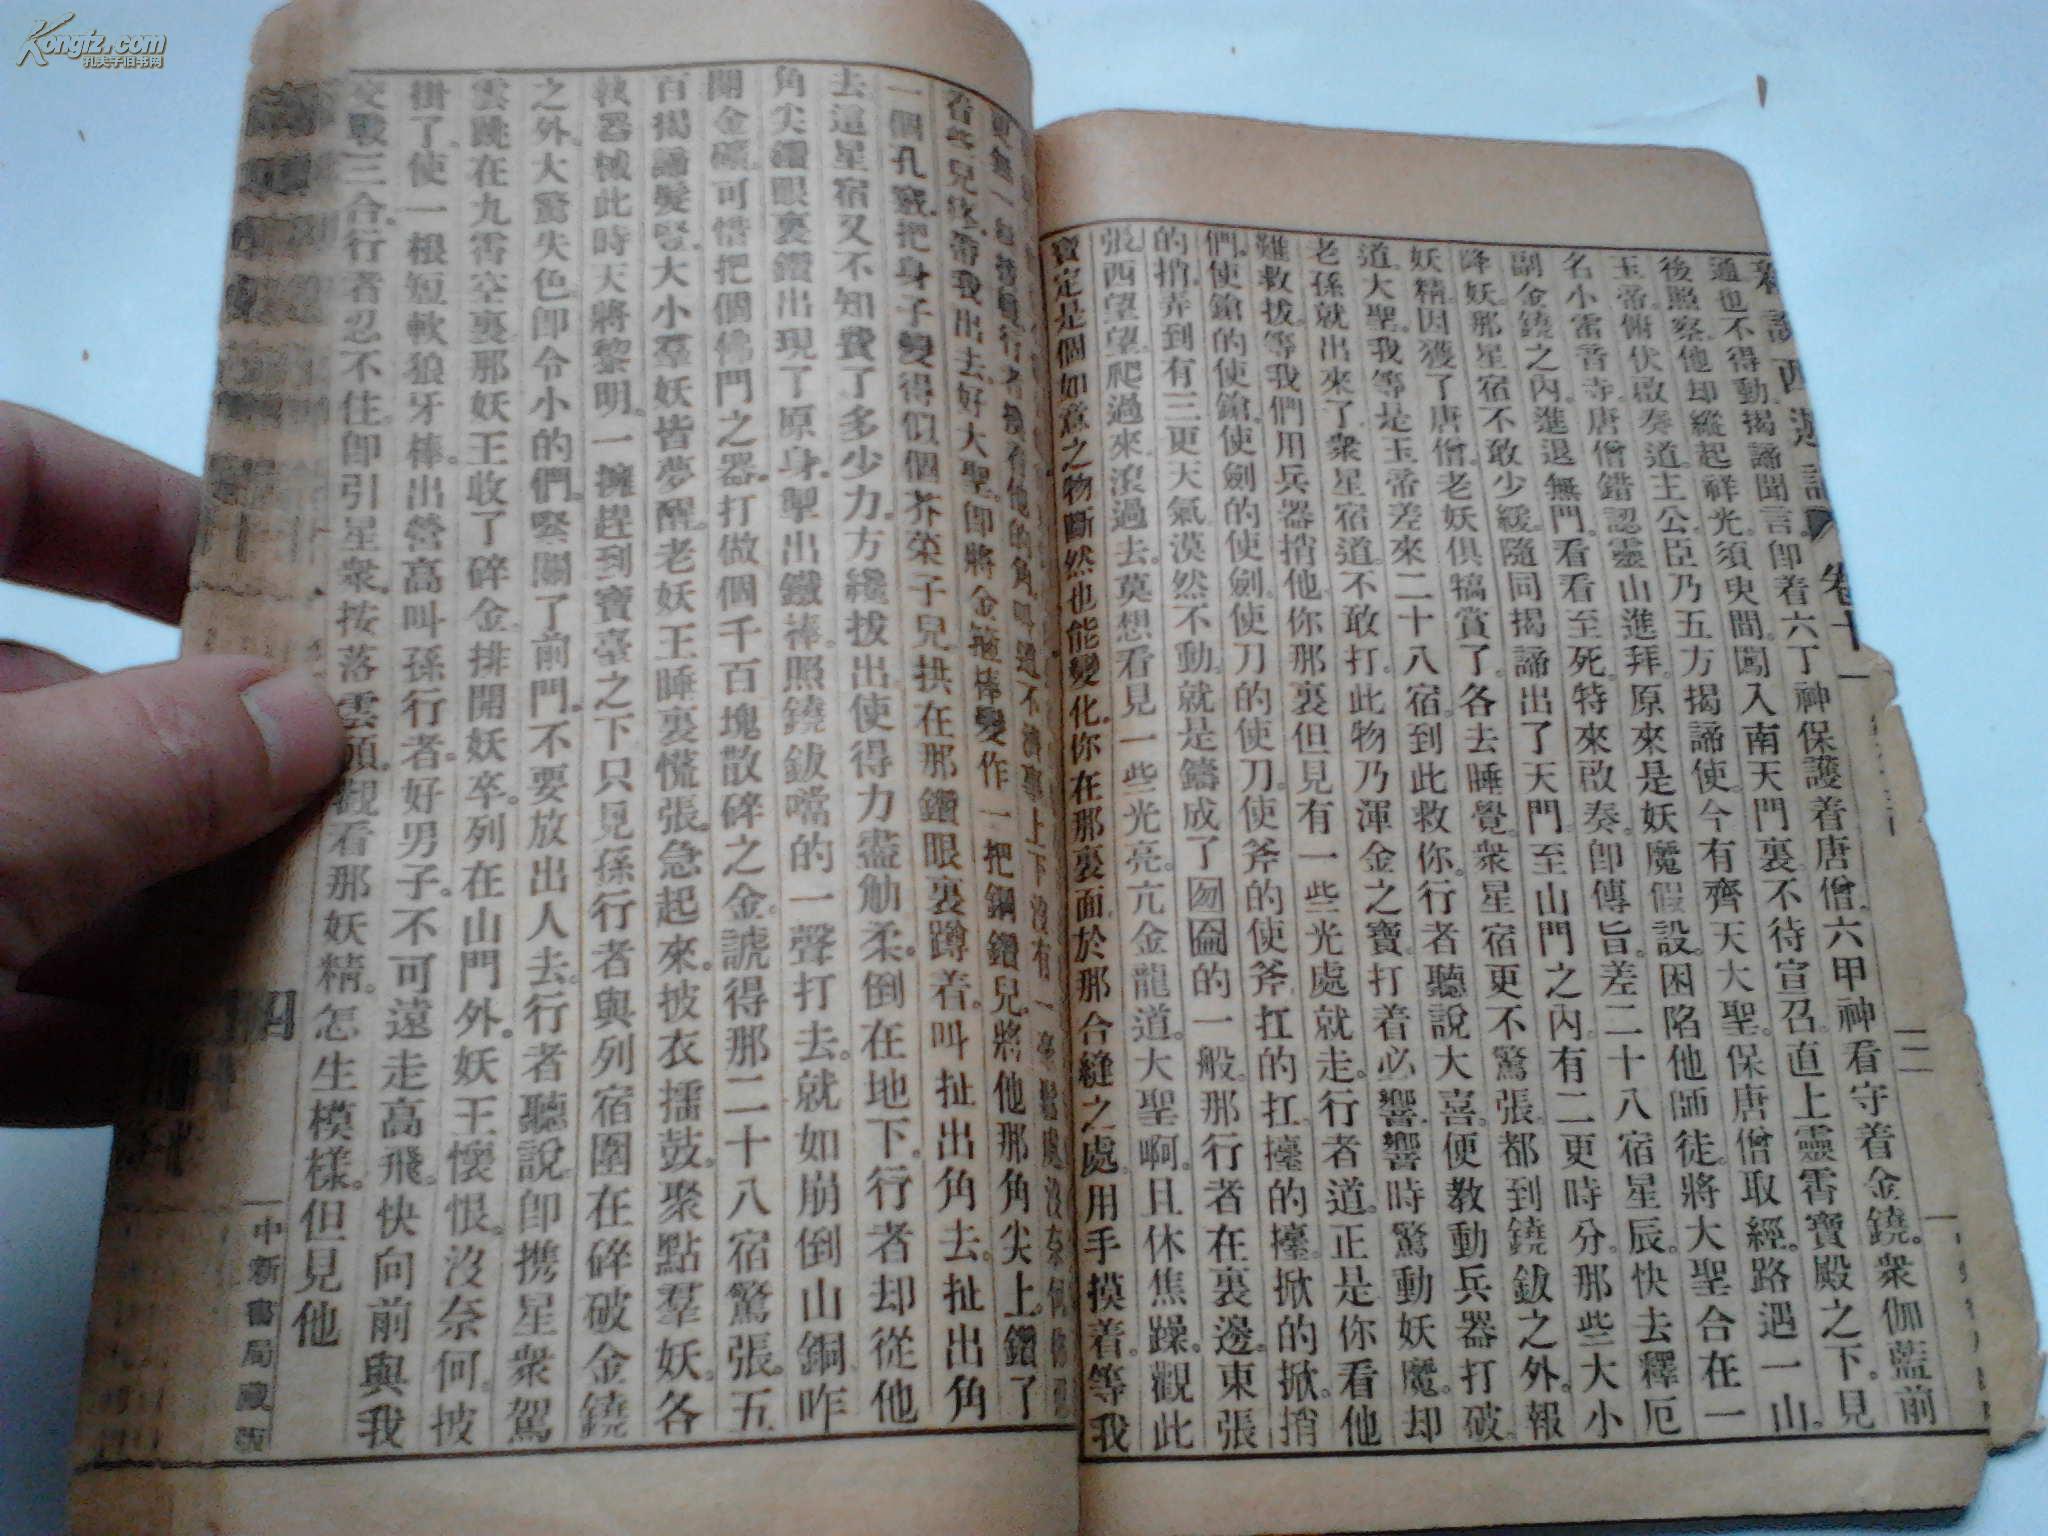 西遊記 卷十
通也不得動。揭諦聞言。卽着六丁神保護着唐僧。六甲神看守着金鐃。衆伽藍前
後照察。他却縱起祥光。須臾間。闖入南天門裏。不待宣召。直上靈霄寶殿之下。見
玉帝。俯伏啟奏道。主公。臣乃五方揭諦使。今有齊天大聖。保唐僧取經。路遇一山。
名小雷音寺。唐僧錯認靈山進拜。原來是妖魔假設。困陷他師徒。將大聖合在一
副金鐃之內。進退無門。看看至死。特來啟奏。卽傳旨。差二十八宿星辰。快去釋厄
降妖。那星宿不敢少緩。隨同揭諦出了天門。至山門之內。有二更時分。那些大小
妖精。因獲了唐僧。老妖俱犒賞了。各去睡覺。衆星宿更不驚張。都到鐃鈸之外。報
道。大聖。我等是玉帝差來二十八宿。到此救你。行者聽說大喜。便教動兵器打破。
老孫就出來了。衆星宿道。不敢打。此物乃渾金之寶。打着必響。響時驚動妖魔。却
難救拔。等我們用兵器捎他。你那裏但見有一些光處就走。行者道。正是你看他
們。使鎗的使鎗。使劍的使劍。使刀的使刀。使斧的使斧。扛的扛。擡的擡。掀的掀。捎
的捎。弄到有三更天氣。漠然不動。就是鑄成了囫圇的一般。那行者在裏邊。東張
張。西望望。爬過來。滾過去。莫想看見一些光亮。亢金龍道。大聖啊。且休焦躁。觀此
寶定是個如意之物。斷然也能變化。你在那裏面。於那合縫之處。用手摸着。等我
看些兒鬆。帶我出去。好大聖。卽將金箍棒變作一把鋼鑽兒。將他那角尖上。鑽了
一個孔竅。把身子變得似個芥菜子兒。拱在那鑽眼裏蹲着。叫扯出角去。扯出角
去。這星宿又不知費了多少力。方纔拔出。使得力盡觔柔。倒在地下。行者却從他
角尖鑽眼裏鑽出。現了原身。掣出鐵棒。照鐃鈸噹的一聲打去。就如崩倒山銅。咋
開金礦。可惜把個佛門之器。打做個千百塊散碎之金。諕得那二十八宿驚張。五
百揭諦髮竪。大小羣妖皆夢醒。老妖王睡裏慌張。急起來。披衣擂鼓。聚點羣妖。各
執器械。此時天將黎明。一擁趕到寶臺之下。只見孫行者與列宿圍在碎破金鐃
之外。大驚失色。卽令小的們。緊關了前門。不要放出人去。行者聽說。卽携星衆。駕
雲跳在九霄空裏。那妖王收了碎金。排開妖卒。列在山門外。妖王懷恨。沒奈何。披
掛了。使一根短軟狼牙棒。出營高叫。孫行者。好男子。不可遠走高飛。快向前與我
交戰三合。行者忍不住。卽引星衆。按落雲頭。觀看那妖精。怎生模樣。但見他
四
中新書局藏版
Kongfz.com
孔夫子旧书网